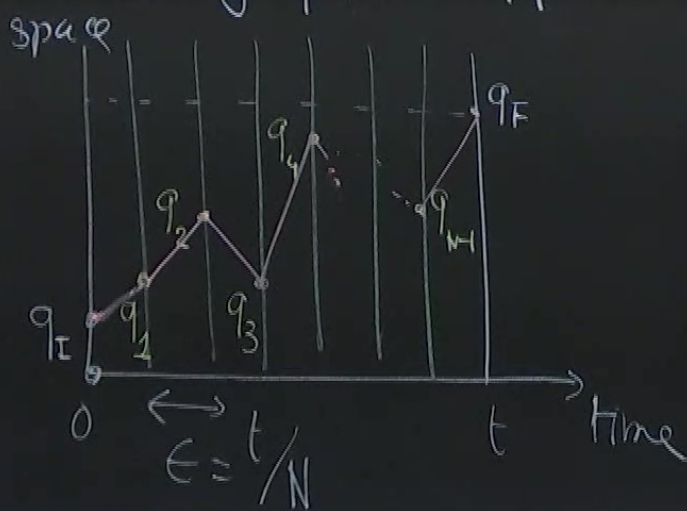 space
q_F
q_4
q_2
q_{N-1}
q_I
q_1
q_3
0
t
time
ϵ = t/N